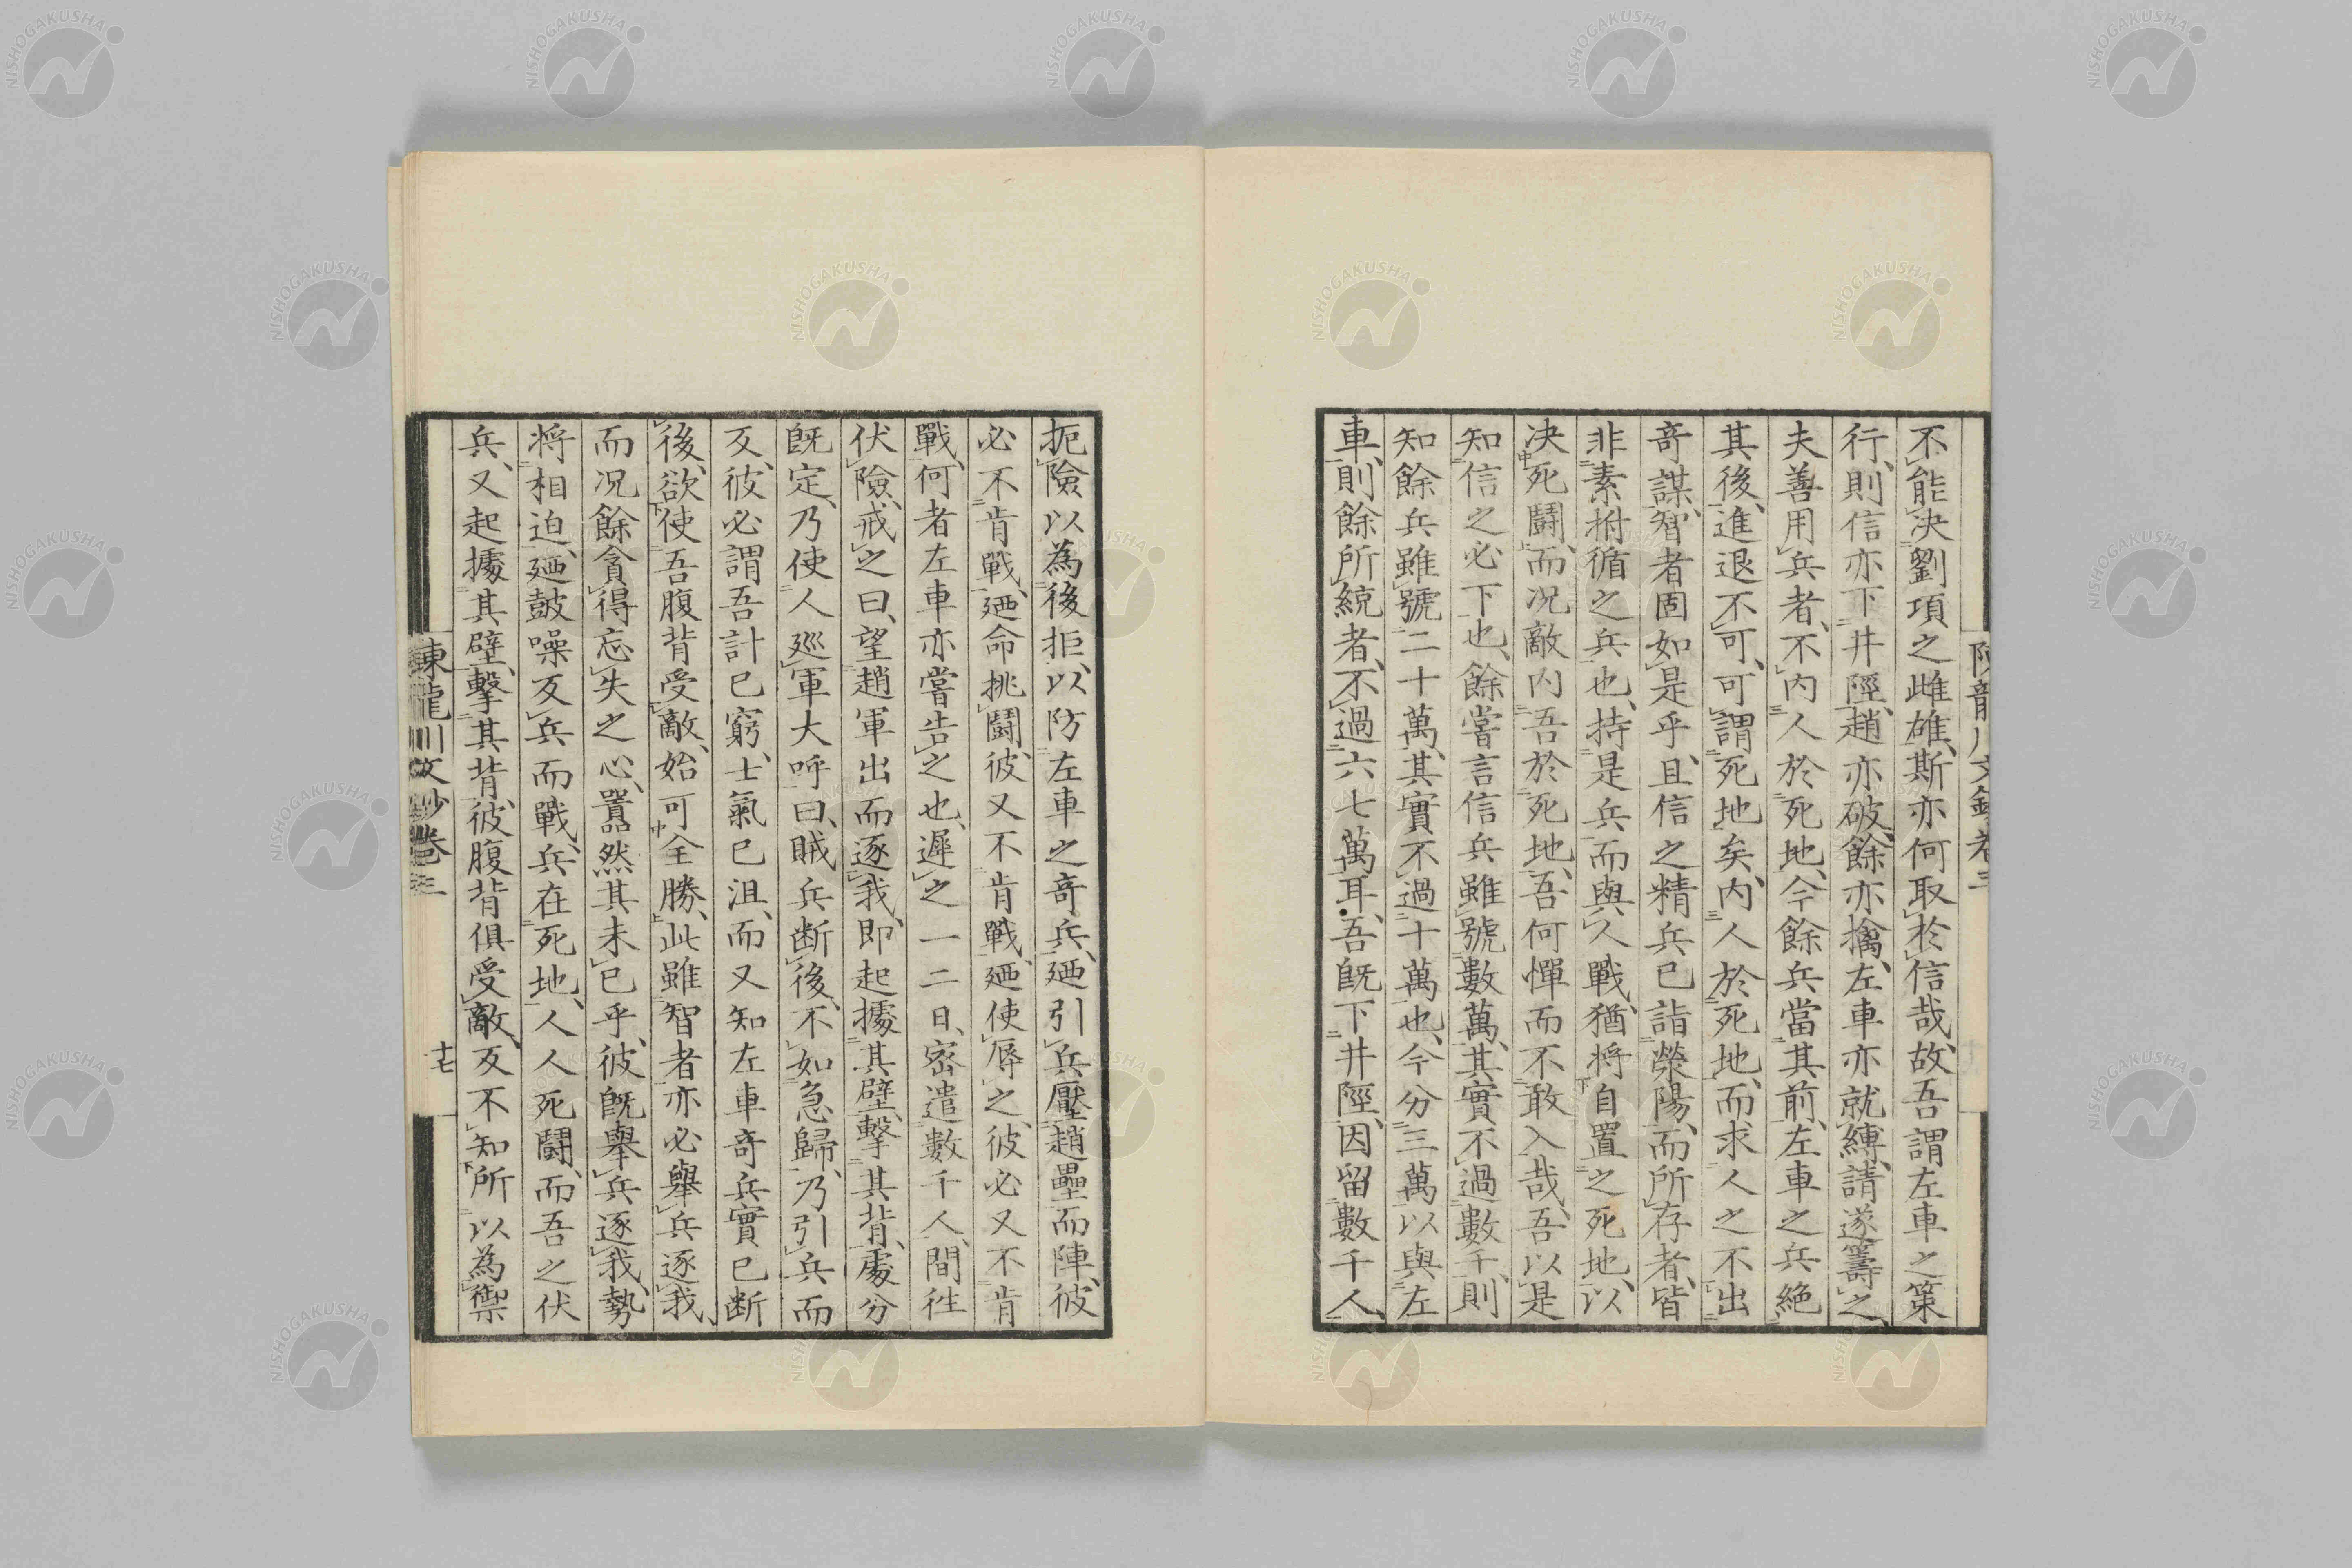 不能決劉項之雌雄、斯亦何取於信哉、故吾謂左車之策
行、則信亦下井陘、趙亦破、餘亦擒、左車亦就縛、請遂籌之、
夫善用兵者、不内人於死地、今餘兵當其前、左車之兵絶
其後、進退不可、可謂死地矣、内人於死地、而求人之不出
奇謀、智者固如是乎、且信之精兵已詣滎陽、而所存者、皆
非素拊循之兵也、持是兵而與人戰、猶將自置之死地、以
決死鬪、而况敵内吾於死地、吾何憚而不敢入哉、吾以是
知信之必下也、餘嘗言信兵雖號數萬、其實不過數千、則
知餘兵雖號二十萬、其實不過十萬也、今分三萬以與左
車、則餘所統者、不過六七萬耳、吾既下井陘、因留數千人、
扼險以為後拒、以防左車之奇兵、廼引兵壓趙壘而陣、彼
必不肯戰、廼命挑鬪、彼又不肯戰、廼使辱之、彼必又不肯
戰、何者左車亦嘗告之也、遲之一二日、密遣數千人、間徃
伏險、戒之曰、望趙軍出而逐我、即起據其壁、擊其背、處分
既定、乃使人巡軍大呼曰、賊兵断後、不如急歸、乃引兵而
反、彼必謂吾計已窮、士氣已沮、而又知左車奇兵實已断
後、欲使吾腹背受敵、始可全勝、此雖智者亦必舉兵逐我、
而况餘貪得忘失之心、囂然其未已乎、彼既舉兵逐我、勢
將相迫、廼鼓噪反兵而戰、兵在死地、人人死鬪、而吾之伏
兵、又起據其壁、擊其背、彼腹背俱受敵、反不知所以為禦
陳龍川文鈔卷三
十七